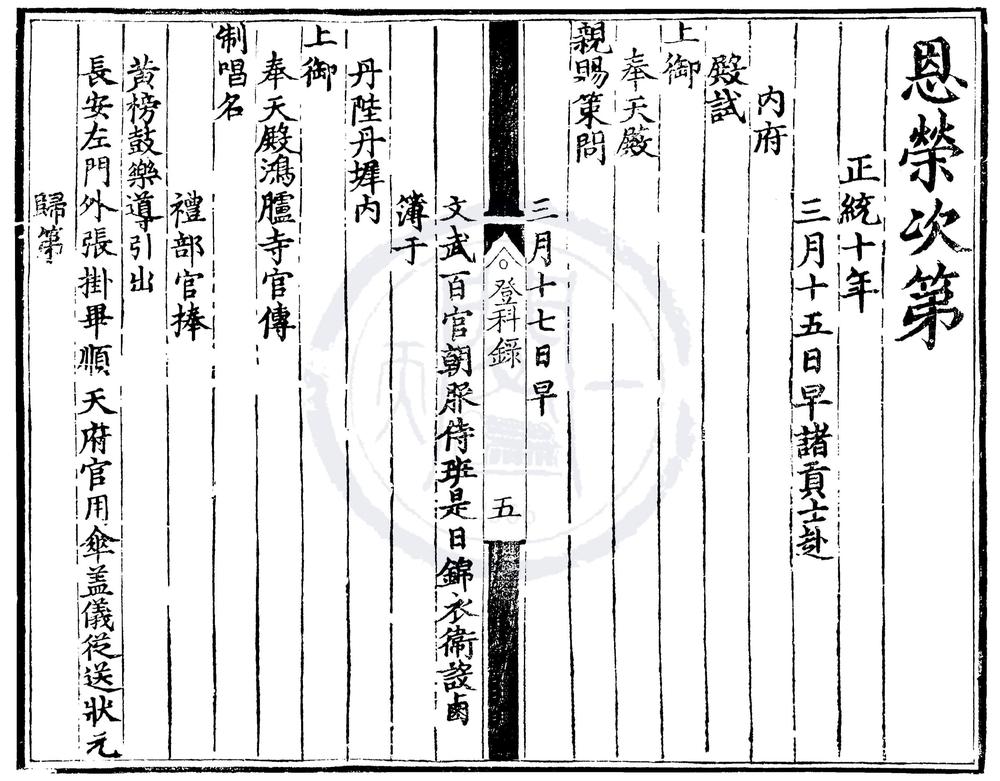 恩榮次第
正統十年
三月十五日早諸貢士赴
內府
殿試
上御
奉天殿
親賜策問
三月十七日早
登科錄
五
文武百官朝服侍班是日錦衣衛設鹵
簿于
丹陛丹墀內
上御
奉天殿鴻臚寺官傳
制唱名
禮部官捧
黃榜鼓樂導引出
長安左門外張掛畢順天府官用傘盖儀從送狀元
歸第